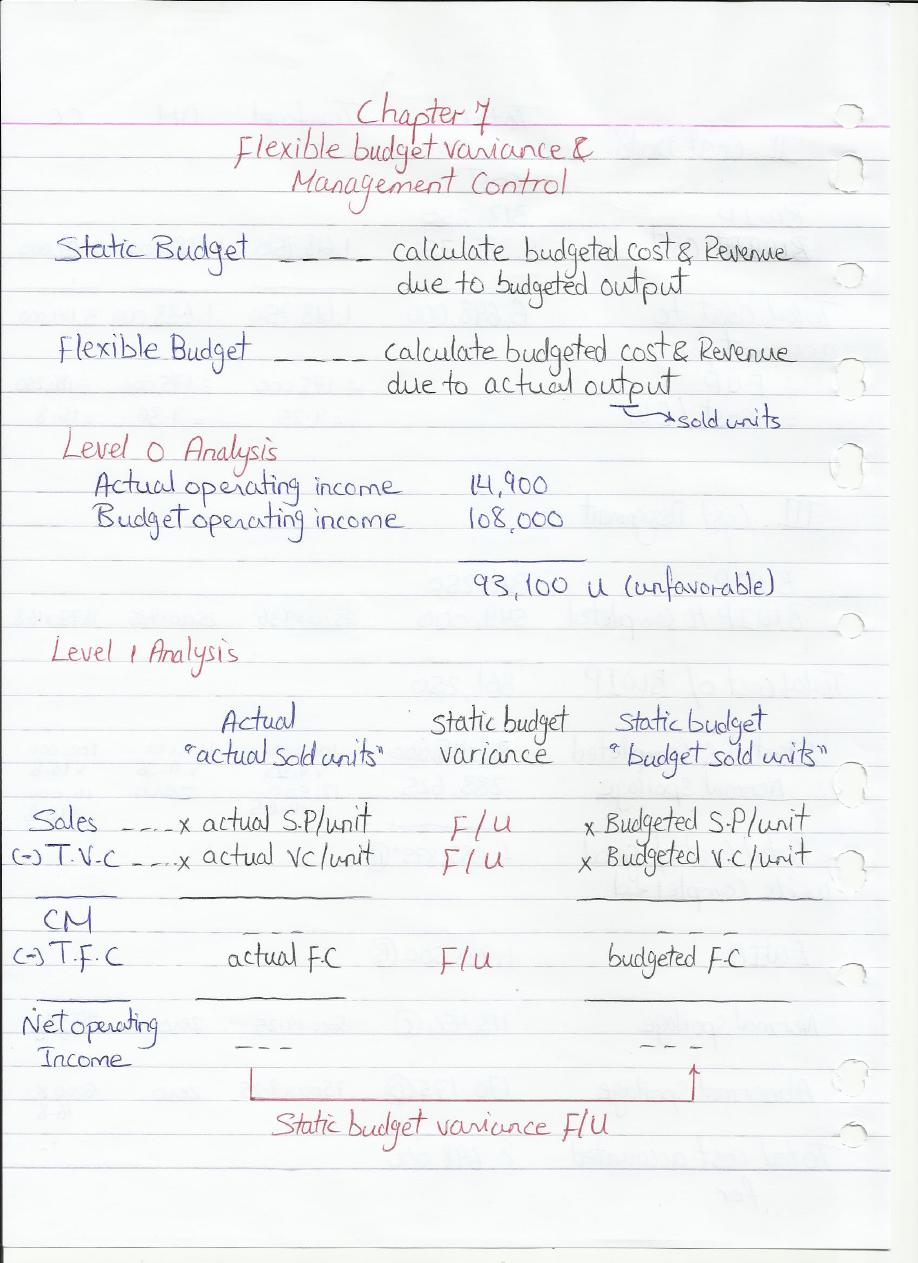 Chapter 7
Flexible budget variance &
Management Control
Static Budget ---- calculate budgeted cost & Revenue
due to budgeted output
Flexible Budget ---- calculate budgeted cost & Revenue
due to actual output
→ sold units
Level 0 Analysis
Actual operating income 14,900
Budget operating income 108,000
93,100 U (unfavorable)
Level 1 Analysis
Actual Static budget Static budget
"actual sold units" variance "budget sold units"
Sales ---- x actual S.P/unit F/U x Budgeted S.P/unit
(-) T.V.C ---- x actual VC/unit F/U x Budgeted V.C/unit
CM --- ---
(-) T.F.C actual F.C F/U budgeted F.C
Net operating
Income --- ---
Static budget variance F/U